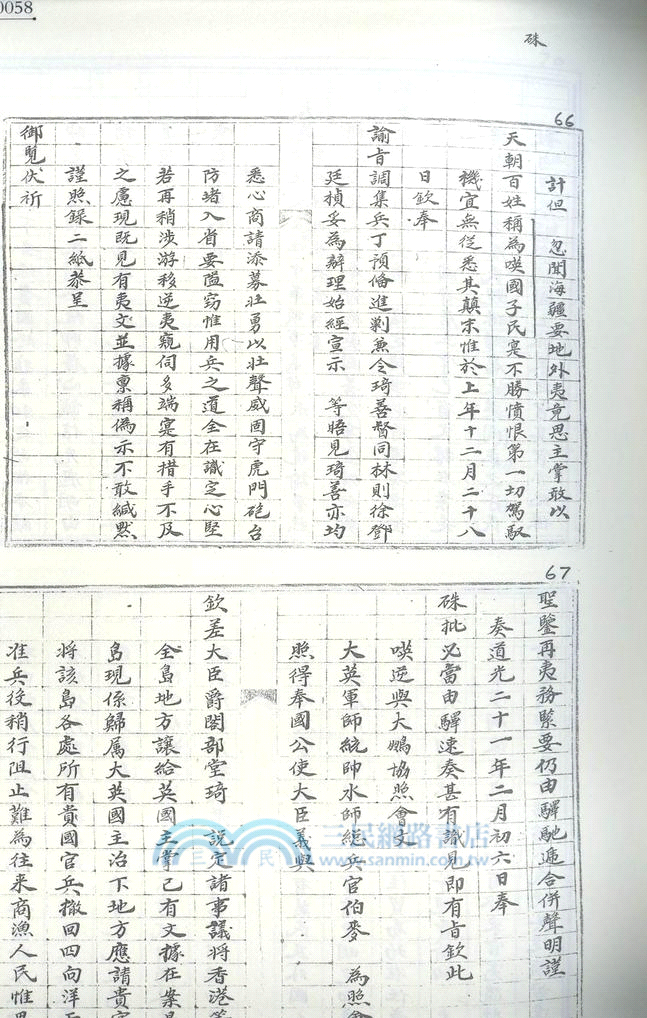 0058
硃
66
計但 忽聞海疆要地外夷竟思主掌敢以
天朝百姓稱為嘆國子民寔不勝憤恨第一切駕馭
機宜無從悉其顛末惟於上年十二月二十八
日欽奉
諭旨調集兵丁預備進剿兼令琦善督同林則徐鄧
廷楨妥為辦理始經宣示 等晤見琦善亦均
悉心商請添募壯勇以壯聲威固守虎門砲台
防堵入省要隘窃惟用兵之道全在識定心堅
若再稍涉游移逆夷窺伺多端寔有措手不及
之慮現既見有夷文並據稟稱偽示不敢緘默
謹照録二紙恭呈
御覧伏祈
67
聖鑒再夷務緊要仍由驛馳遞合併聲明謹
奏道光二十一年二月初六日奉
硃批必當由驛速奏甚有識見即有旨欽此
嘆逆與大鵬協照會文
大英軍師統帥水師總兵官伯麥 為照會
照得奉國公使大臣義與
欽差大臣爵閣部堂琦 説定諸事議將香港等
全島地方讓給英國主掌已有文據在案是
島現係歸属大英國主治下地方應請貴官
將該島各處所有貴國官兵撤回四向洋
准兵役稍行阻止難為往来商漁人民惟
三民網路書店
三民
www.sanmin.com.tw